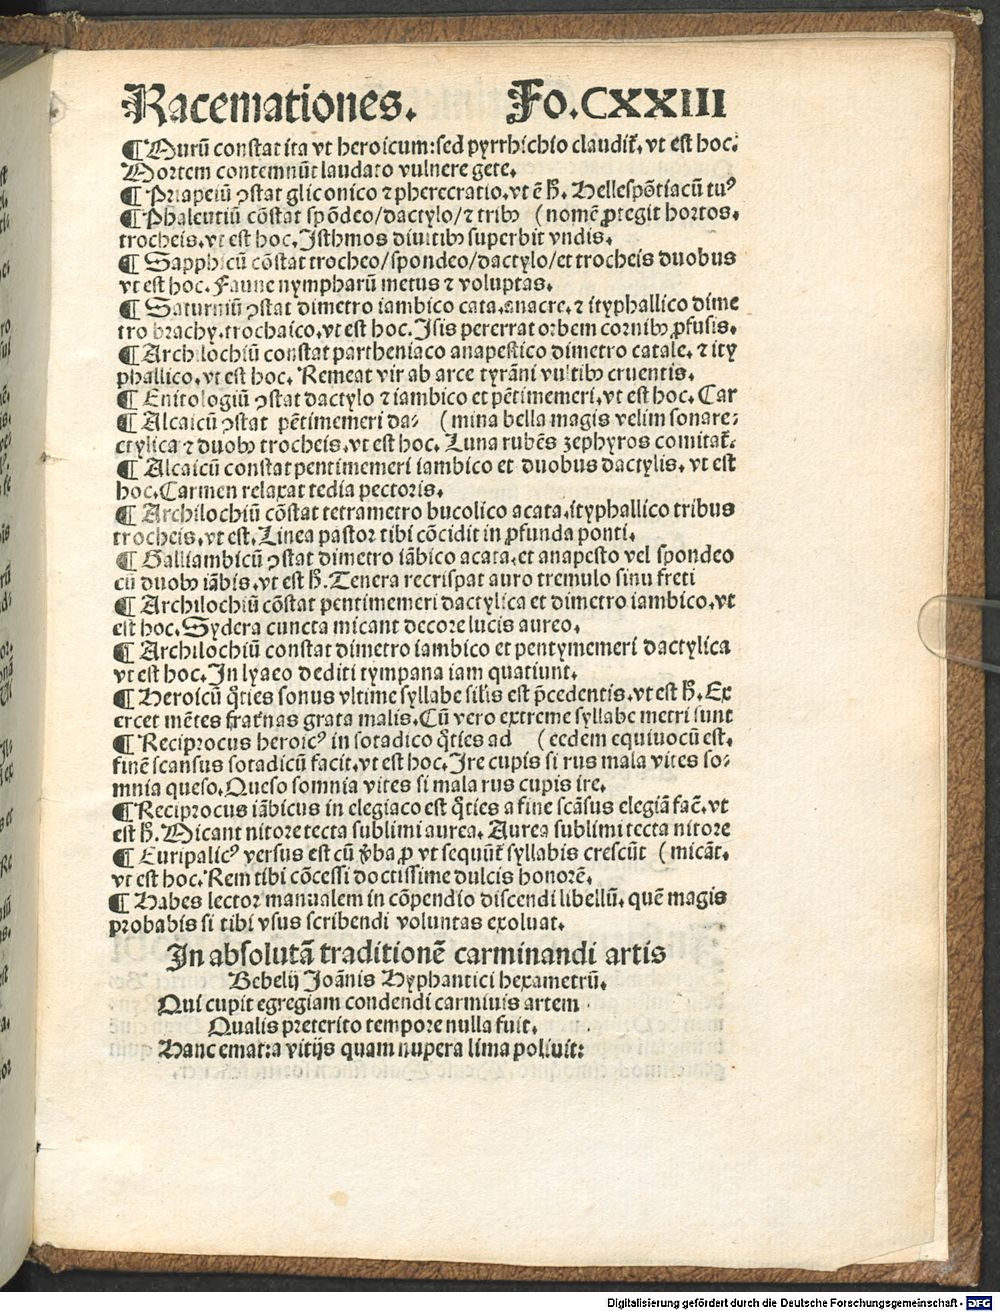 Racemationes. Fo. CXXIII
¶ Murū constat ita vt heroicum: sed pyrrhichio claudit̄, vt est hoc.
Mortem contemnūt laudato vulnere gete.
¶ Priapeiū ↄstat gliconico ⁊ pherecratio. vt ē h̄. Hellespōtiacū tuꝰ
¶ Phaleutiū cōstat spōdeo/dactylo/⁊ tribꝫ (nomē ꝓtegit hortos.
trocheis. vt est hoc. Isthmos diuitibꝫ superbit vndis.
¶ Sapphicū cōstat trocheo/spondeo/dactylo/et trocheis duobus
vt est hoc. Faune nympharū metus ⁊ voluptas.
¶ Saturniū ↄstat dimetro iambico cata. anacre. ⁊ ityphallico dime
tro brachy. trochaico, vt est hoc. Isis pererrat orbem cornibꝫ ꝓfusis.
¶ Archilochiū constat partheniaco anapestico dimetro catale. ⁊ ity
phallico, vt est hoc. Remeat vir ab arce tyrāni vultibꝫ cruentis.
¶ Enitologiū ↄstat dactylo ⁊ iambico et pētimemeri, vt est hoc. Car
¶ Alcaicū ↄstat pētimemeri da- (mina bella magis velim sonare:
ctylica ⁊ duobꝫ trocheis. vt est hoc. Luna rubēs zephyros comitat̄.
¶ Alcaicū constat pentimemeri iambico et duobus dactylis. vt est
hoc. Carmen relaxat tedia pectoris.
¶ Archilochiū cōstat tetrametro bucolico acata. ityphallico tribus
trocheis. vt est. Linea pastor tibi cōcidit in ꝓfunda ponti.
¶ Galliambicū ↄstat dimetro iābico acata. et anapesto vel spondeo
cū duobꝫ iābis. vt est h̄. Tenera recrispat auro tremulo sinu freti
¶ Archilochiū cōstat pentimemeri dactylica et dimetro iambico. vt
est hoc. Sydera cuncta micant decore lucis aureo.
¶ Archilochiū constat dimetro iambico et pentymemeri dactylica
vt est hoc. In lyaeo dediti tympana iam quatiunt.
¶ Heroicū q̄ties sonus vltime syllabe sil̄is est p̄cedentis. vt est h̄. Ex
ercet mētes frat̄nas grata malis. Cū vero extreme syllabe metri sunt
¶ Reciprocus heroicꝰ in sotadico q̄ties ad (eedem equiuocū est.
finē scansus sotadicū facit. vt est hoc. Ire cupis si rus mala vites so-
mnia queso. Queso somnia vites si mala rus cupis ire.
¶ Reciprocus iābicus in elegiaco est q̄ties a fine scāsus elegiā fac̄. vt
est h̄. Micant nitore tecta sublimi aurea. Aurea sublimi tecta nitore
¶ Euripalicꝰ versus est cū v̄ba ꝓ vt sequūt̄ syllabis crescūt (micāt.
vt est hoc. Rem tibi cōcessi doctissime dulcis honorē.
¶ Habes lector manualem in cōpendio discendi libellū. quē magis
probabis si tibi vsus scribendi voluntas exoluat.
In absolutā traditionē carminandi artis
Bebelij Joānis Hyphantici hexametrū.
Qui cupit egregiam condendi carminis artem
Qualis preterito tempore nulla fuit.
Hanc emat: a vitijs quam nupera lima poliuit:
Digitalisierung gefördert durch die Deutsche Forschungsgemeinschaft - DFG